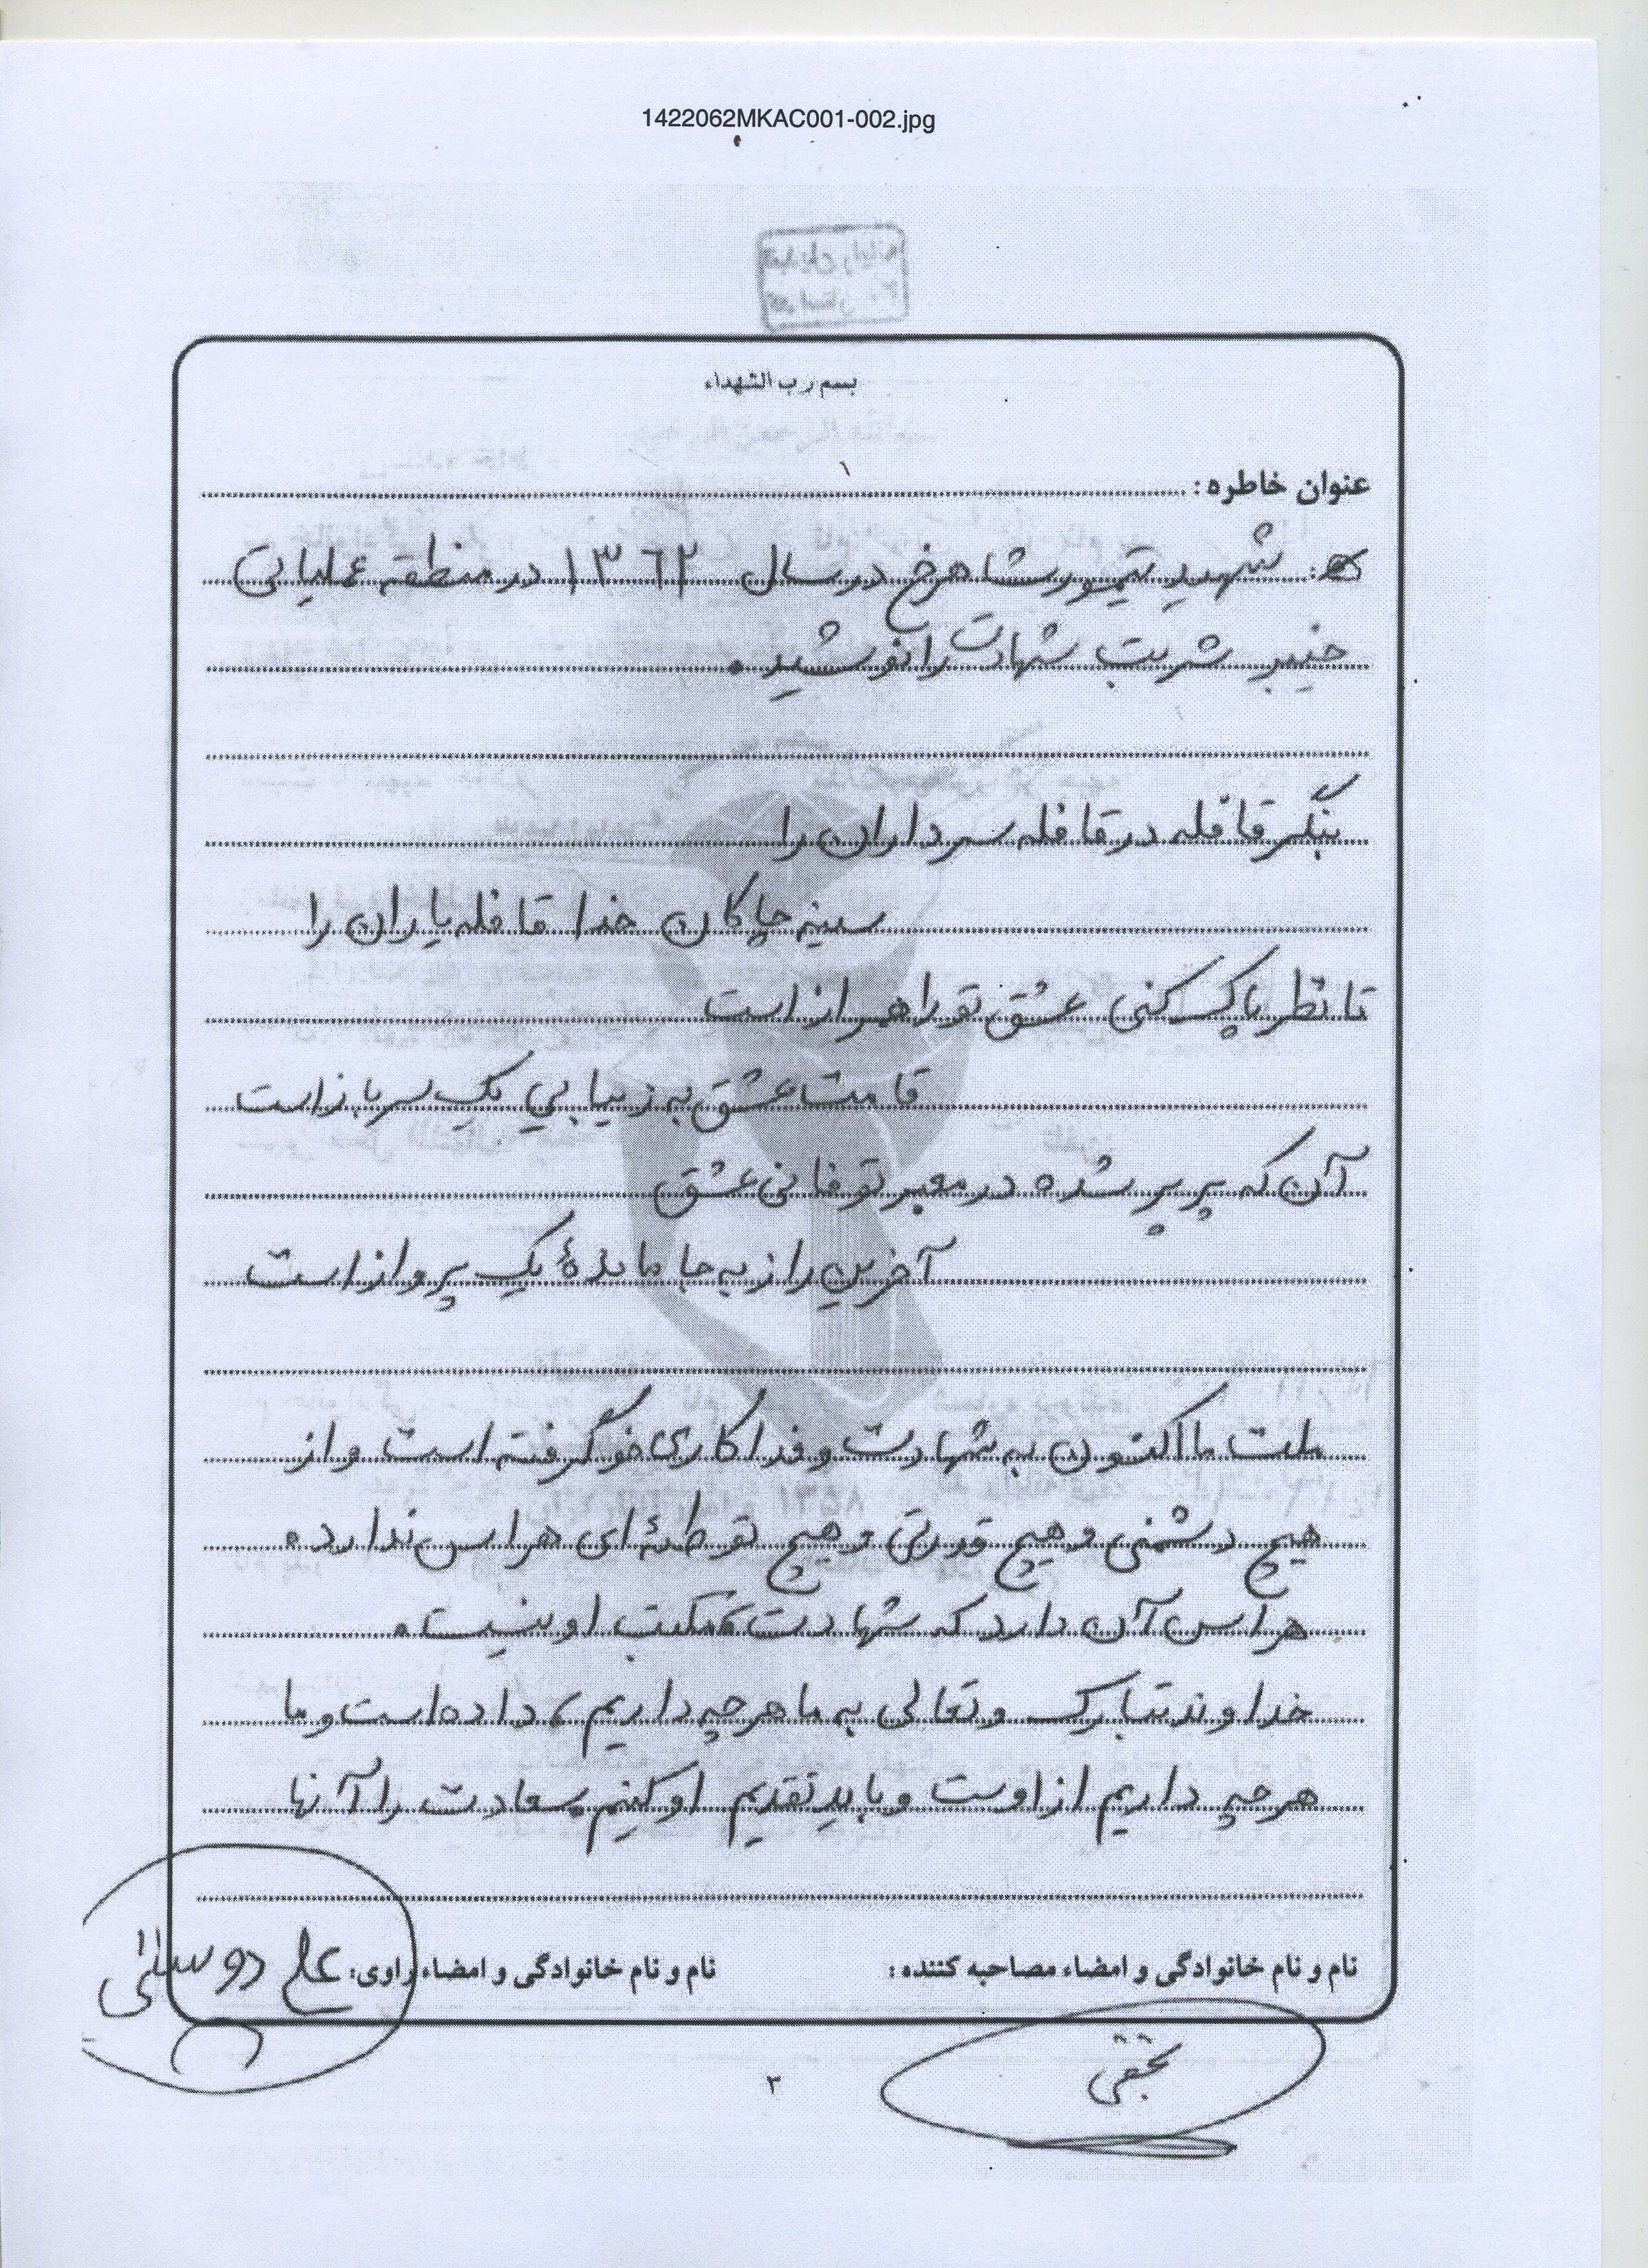 1422062MKAC001-002.jpg
بسم رب الشهداء
عنوان خاطره:
شهید تیمور شاهرخ در سال ۱۳۶۲ در منطقه عملیاتی
خیبر شربت شهادت را نوشید.
بنگر قافله در قافله سرداران را
سینه چاکان خدا قافله یاران را
تا نظر پاک کنی عشق تو را همراز است
قامت عشق به زیبایی یک سرباز است
آن که پرپر شده در معبر توفانی عشق
آخرین راز به جا ماندهٔ یک پرواز است
ملت ما اکنون به شهادت و فداکاری خو گرفته است و از
هیچ دشمنی و هیچ قدرتی و هیچ توطئه‌ای هراس ندارد.
هراس آن دارد که شهادت، مکتب او نیست.
خداوند تبارک و تعالی به ما هر چه داریم، داده است و ما
هر چه داریم از اوست و باید تقدیم او کنیم. سعادت را آنها
نام و نام خانوادگی و امضاء مصاحبه کننده: نام و نام خانوادگی و امضاء راوی: علی دوستی
۳